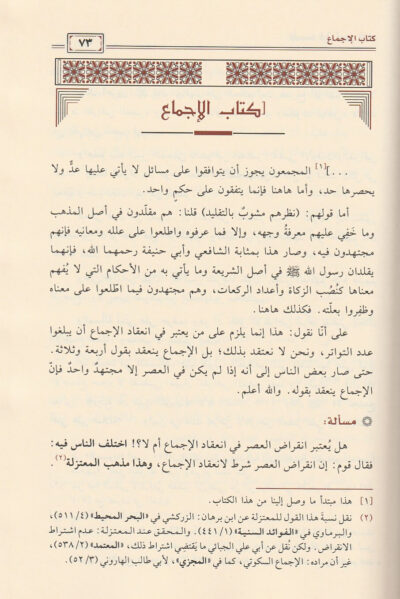 كتاب الإجماع
٧٣
[كتاب الإجماع
. . . ][١] المجمعون يجوز أن يتوافقوا على مسائل لا يأتي عليها عدٌّ ولا
يحصرها حد، وأما هاهنا فإنما يتفقون على حكمٍ واحد.
أما قولهم: (نظرهم مشوبٌ بالتقليد) قلنا: هم مقلّدون في أصل المذهب
وما خَفِي عليهم معرفةُ وجهه، وإلا فما عرفوه واطلعوا على علله ومعانيه فإنهم
مجتهدون فيه، وصار هذا بمثابة الشافعي وأبي حنيفة رحمهما الله، فإنهما
يقلدان رسول الله ﷺ في أصل الشريعة وما يأتي به من الأحكام التي لا يُفهم
معناها كنُصُب الزكاة وأعداد الركعات، وهم مجتهدون فيما اطّلعوا على معناه
وظفِروا بعلّته. فكذلك هاهنا.
على أنّا نقول: هذا إنما يلزم على من يعتبر في انعقاد الإجماع أن يبلغوا
عدد التواتر، ونحن لا نعتقد بذلك؛ بل الإجماع ينعقد بقول أربعة وثلاثة.
حتى صار بعض الناس إلى أنه إذا لم يكن في العصر إلا مجتهدٌ واحدٌ فإنّ
الإجماع ينعقد بقوله. والله أعلم.
مسألة:
هل يُعتبر انقراض العصر في انعقاد الإجماع أم لا؟! اختلف الناس فيه:
فقال قوم: إن انقراض العصر شرط لانعقاد الإجماع، وهذا مذهب المعتزلة(٢).
[١] هذا مبتدأ ما وصل إلينا من هذا الكتاب.
(٢) نقل نسبةَ هذا القول للمعتزلة عن ابن برهان: الزركشي في «البحر المحيط» (٥١١/٤)،
والبرماوي في «الفوائد السنية» (٤٤١/١). والمحقق عند المعتزلة: عدم اشتراط
الانقراض. ولكن نُقل عن أبي علي الجبائي ما يَقتضِي اشتراط ذلك، «المعتمد» (٥٣٨/٢)،
غير أن مراده: الإجماع السكوتي، كما في «المجزي»، لأبي طالب الهاروني (٥٢/٣).